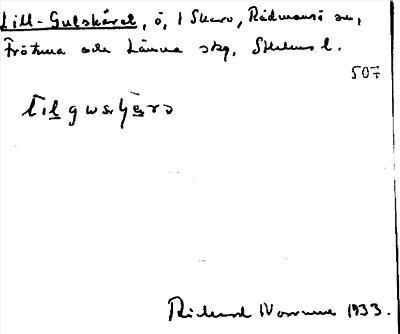 Lill-Gulskäret, ö, i Skarv, Rådmansö sn,
Frötuna och Länna skg, Sthlms l.
507
Richard 1933.